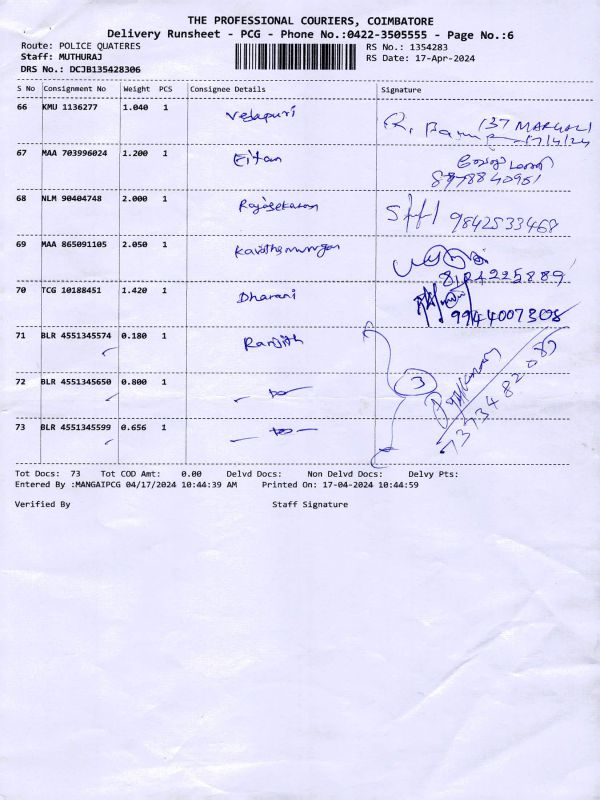 THE PROFESSIONAL COURIERS, COIMBATORE
Delivery Runsheet - PCG - Phone No.:0422-3505555 - Page No.:6
Route: POLICE QUATERES
RS No.: 1354283
Staff: MUTHURAJ
RS Date: 17-Apr-2024
DRS No.: DCJB135428306
S No Consignment No Weight PCS Consignee Details Signature
66 KMU 1136277 1.040 1 Velapuri
137
17/4/24
67 MAA 703996024 1.200 1 Eitan
8778840951
68 NLM 90404748 2.000 1 Rajasekaran
9842533468
69 MAA 865091105 2.050 1
70 TCG 10188451 1.420 1 Dharani
9944007308
71 BLR 4551345574 0.180 1 Ranjith
72 BLR 4551345650 0.800 1 - do -
3
7373482089
73 BLR 4551345599 0.656 1 - do -
Tot Docs: 73 Tot COD Amt: 0.00 Delvd Docs: Non Delvd Docs: Delvy Pts:
Entered By :MANGAIPCG 04/17/2024 10:44:39 AM Printed On: 17-04-2024 10:44:59
Verified By Staff Signature